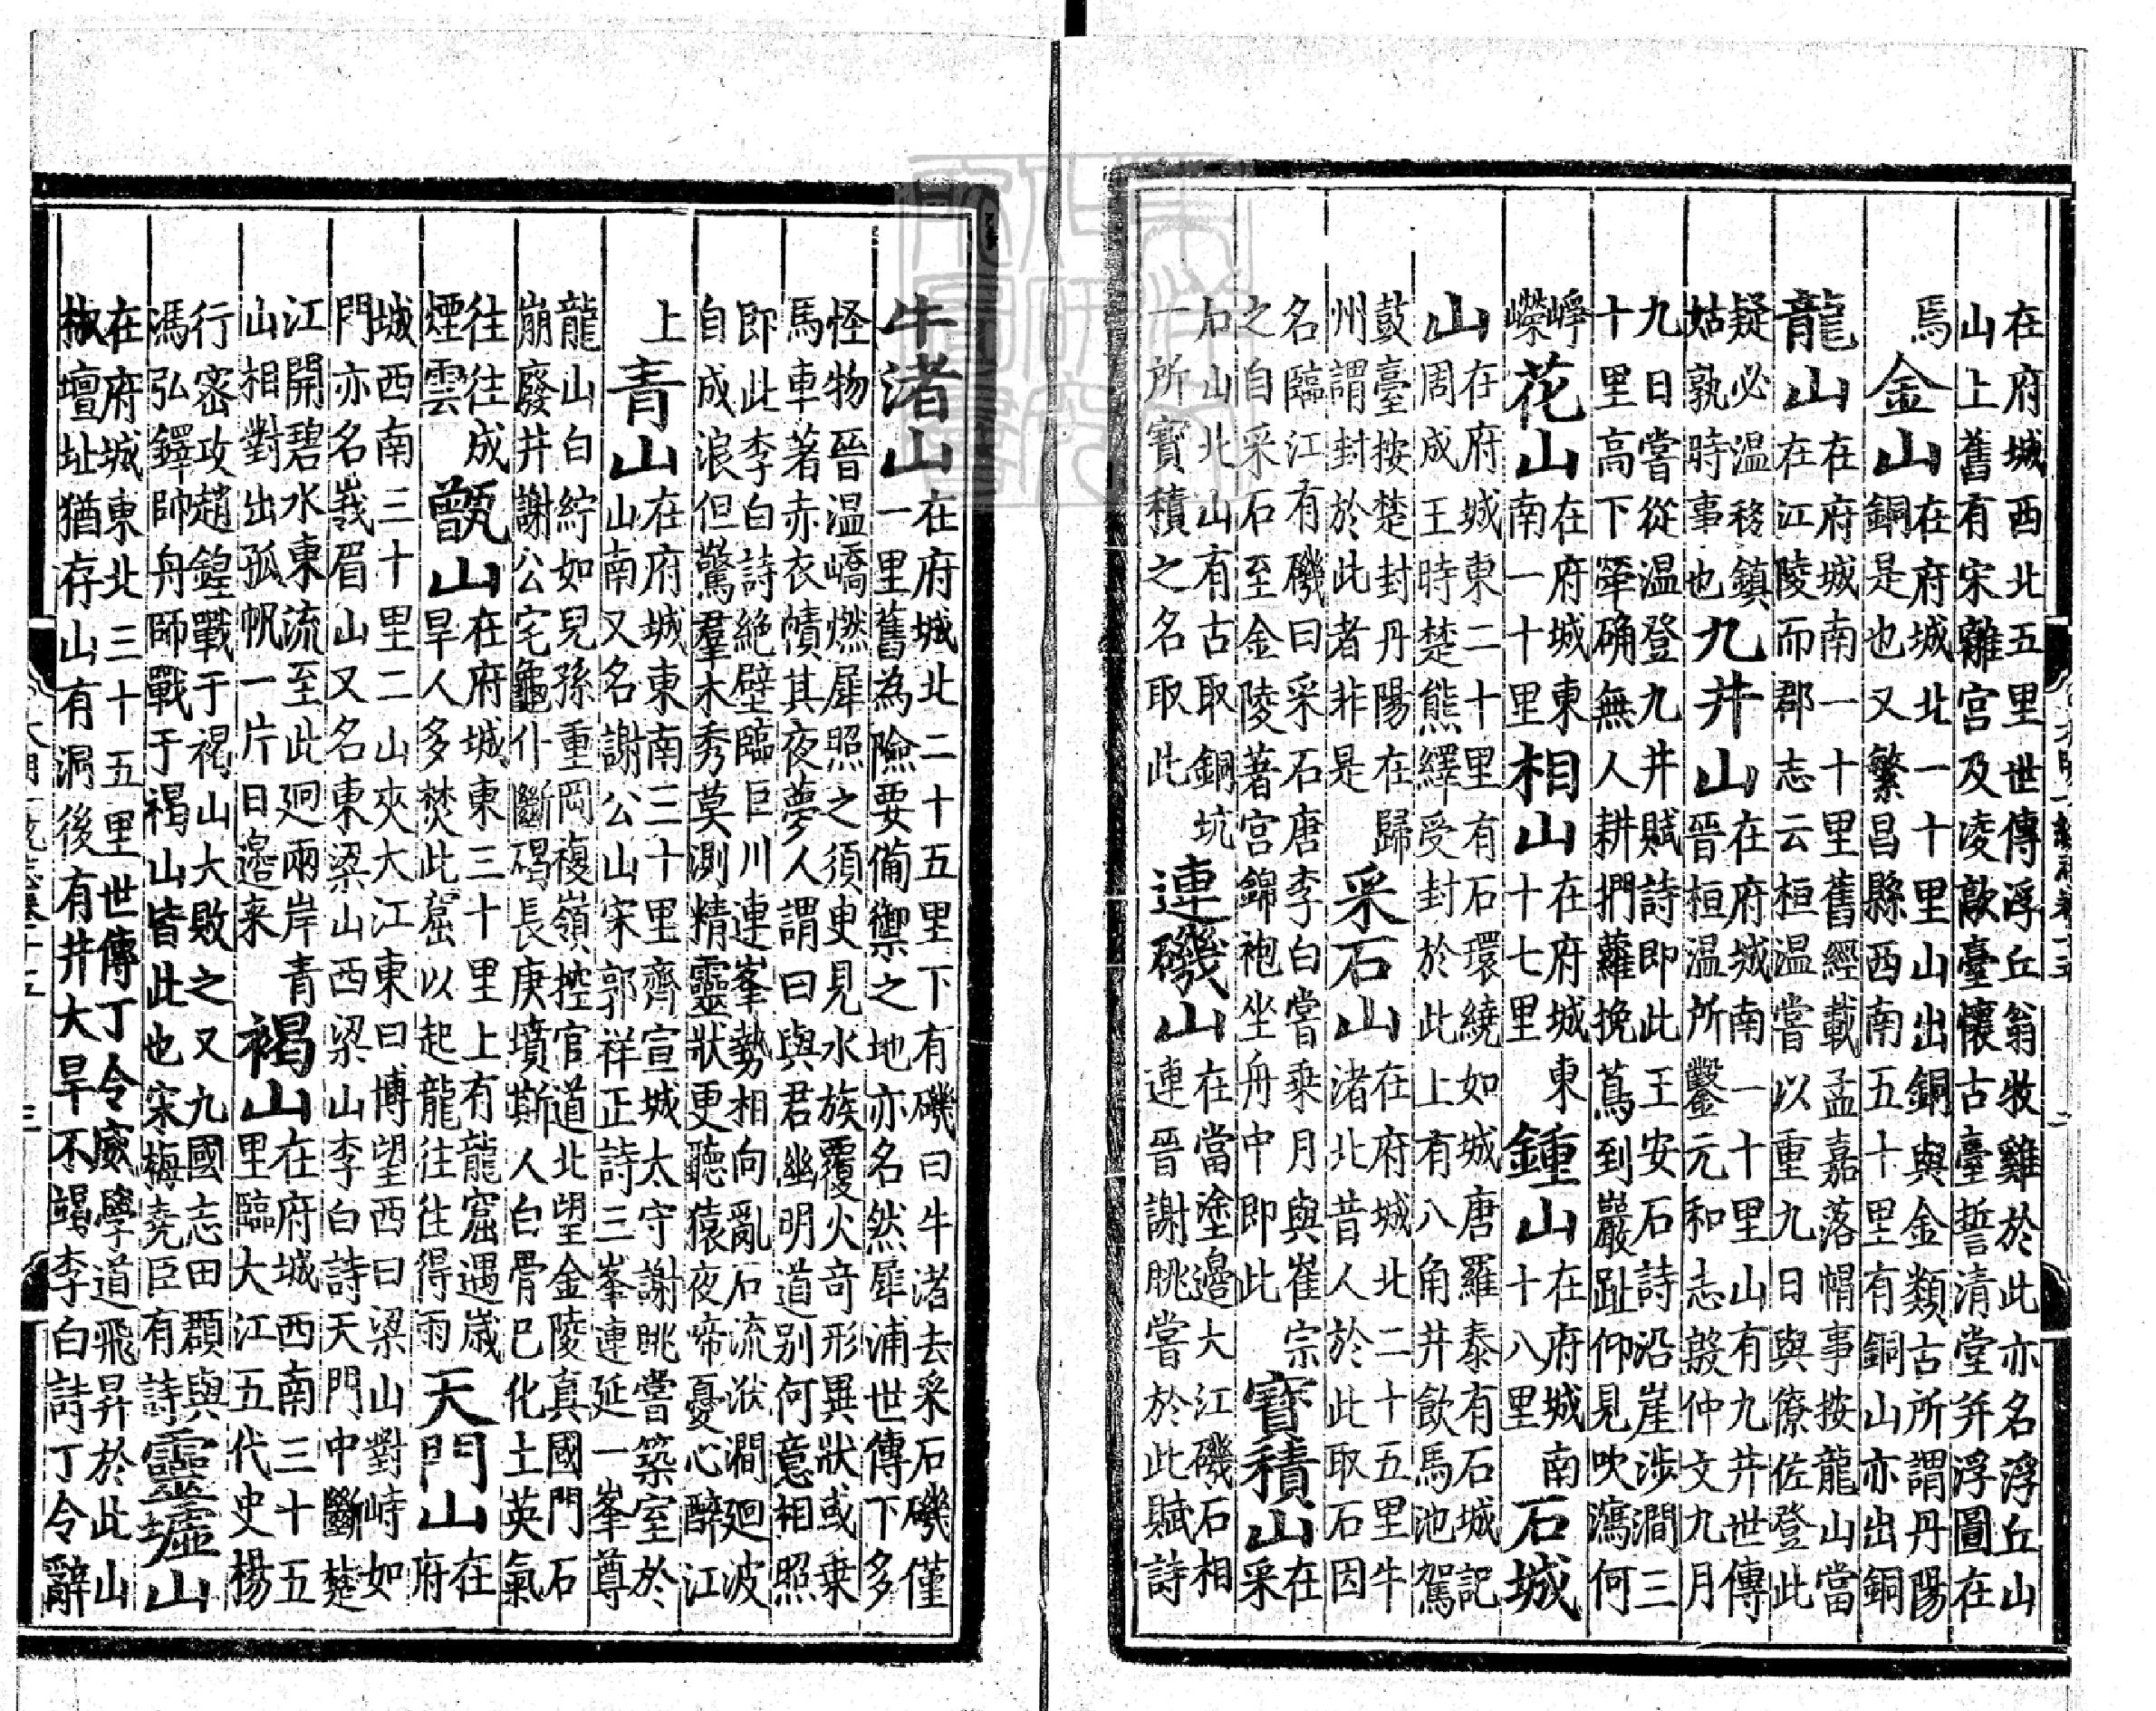 在府城西北五里世傳浮丘翁牧雞於此亦名浮丘山
山上舊有宋離宮及凌歊臺懷古臺誓清堂并浮圖在
焉 金山在府城北一十里山出銅與金類古所謂丹陽
銅是也又繁昌縣西南五十里有銅山亦出銅
龍山在府城南一十里舊經載孟嘉落帽事按龍山當
在江陵而郡志云桓温嘗以重九日與僚佐登此
疑必温移鎮
姑孰時事也九井山在府城南一十里山有九井世傳
晉桓温所鑿元和志殷仲文九月
九日嘗從温登九井賦詩即此王安石詩沿崖涉澗三
十里高下犖确無人耕捫蘿挽蔦到巖趾仰見吹瀉何
崢
嶸花山在府城東
南一十里相山在府城東
十七里鍾山在府城南
十八里石城
山在府城東二十里有石環繞如城唐羅泰有石城記
周成王時楚熊繹受封於此上有八角井飲馬池駕
鼓臺按楚封丹陽在歸
州謂封於此者非是采石山在府城北二十五里牛
渚北昔人於此取石因
名臨江有磯曰采石唐李白嘗乗月與崔宗
之自采石至金陵著宮錦袍坐舟中即此寶積山在
采
石山北山有古取銅坑
一所寶積之名取此連磯山在當塗邉大江磯石相
連晉謝眺嘗於此賦詩
牛渚山在府城北二十五里下有磯曰牛渚去采石磯僅
一里舊為險要備禦之地亦名然犀浦世傳下多
怪物晉温嶠燃犀照之須臾見水族覆火竒形異狀或乗
馬車著赤衣幘其夜夢人謂曰與君幽明道别何意相照
即此李白詩絶壁臨巨川連峯勢相向亂石流洑澗廻波
自成浪但驚羣木秀莫測精靈狀更聽猿夜啼憂心醉江
上 青山在府城東南三十里齊宣城太守謝眺嘗築室於
山南又名謝公山宋郭祥正詩三峯連延一峯尊
龍山白紵如兒孫重岡複嶺控官道北望金陵真國門石
崩廢井謝公宅龜仆斷碣長庚墳斯人白骨已化土英氣
往往成
煙雲 甑山在府城東三十里上有龍窟遇歳
旱人多焚此窟以起龍往往得雨天門山在
府
城西南三十里二山夾大江東曰博望西曰梁山對峙如
門亦名峩眉山又名東梁山西梁山李白詩天門中斷楚
江開碧水東流至此廻兩岸青
山相對出孤帆一片日邉来 褐山在府城西南三十五
里臨大江五代史楊
行密攻趙鍠戰于褐山大敗之又九國志田頵與
馮弘鐸帥舟師戰于褐山皆此也宋梅堯臣有詩靈墟山
在府城東北三十五里世傳丁令威學道飛昇於此山
椒壇址猶存山有洞後有井大旱不竭李白詩丁令辭
三